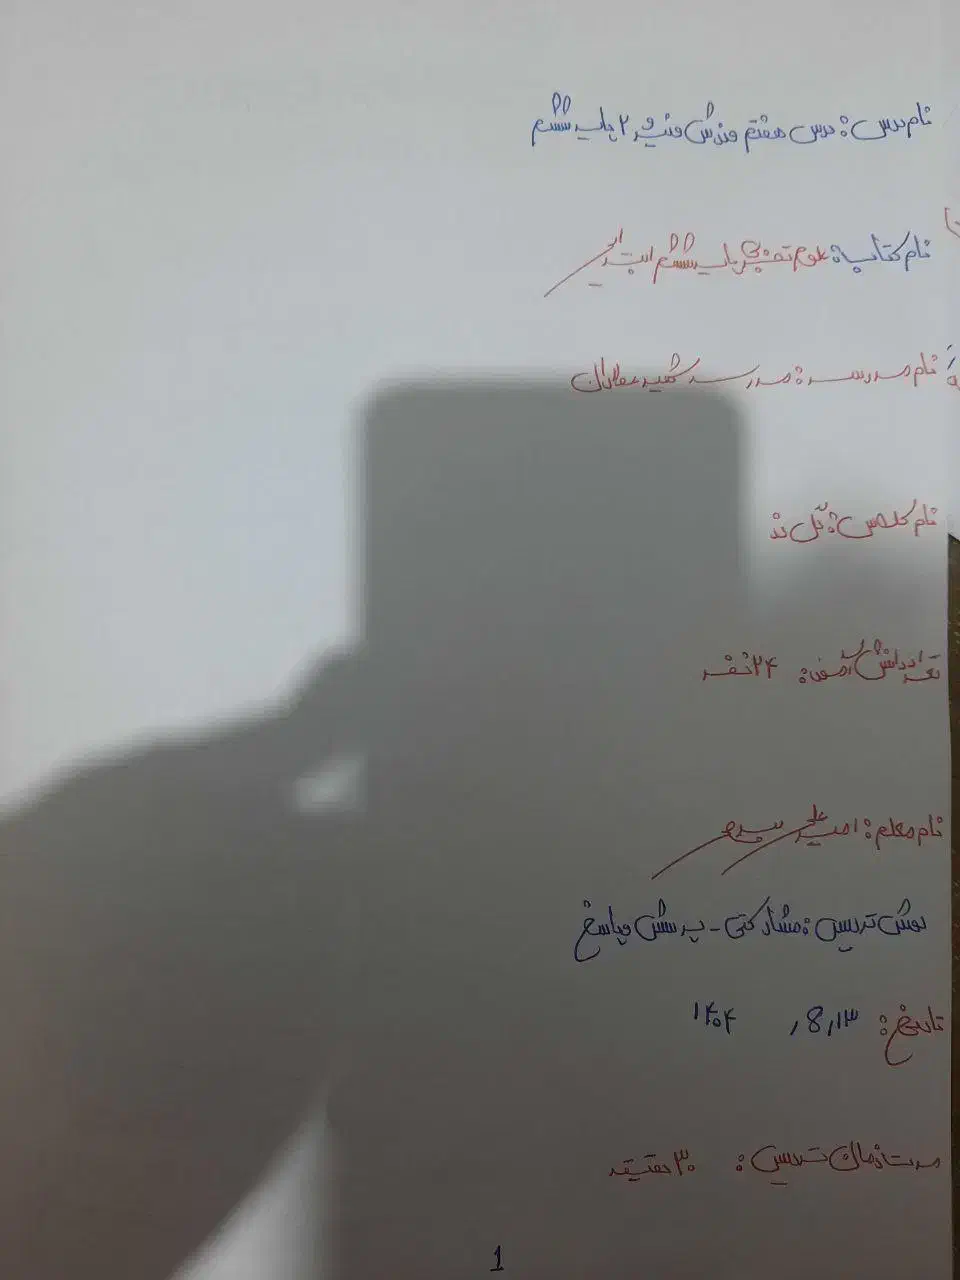 نام درس: درس هفتم ورزش و نیرو ۲ پایه ششم
نام کتاب: علوم تجربی پایه ششم ابتدایی
نام مدرسه: مدرسه شهید
نام کلاس: گل
تعداد دانش آموزان: ۲۴ نفر
نام معلم: امید علی
روش تدریس: مشارکتی - پرسش و پاسخ
تاریخ: ۱۳, 8, ۱۴۰۴
مدت زمان تدریس: ۳۰ دقیقه
1